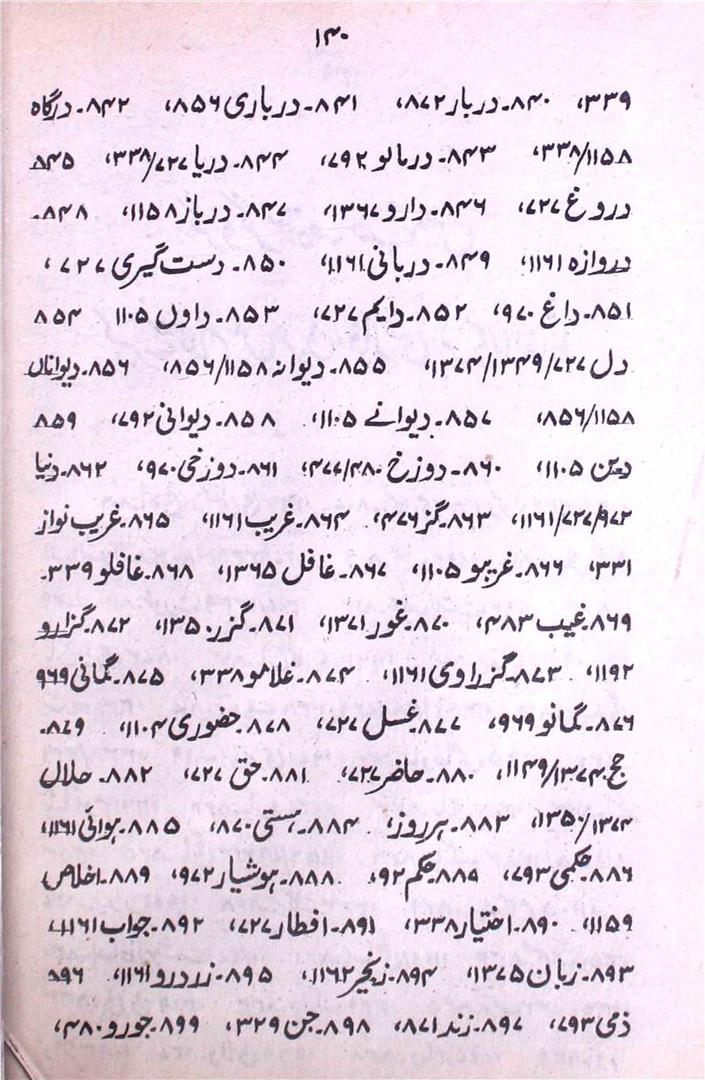 ۱۴۰
۳۳۹، ۸۴۰۔دربار۸۷۲، ۸۴۱۔درباری۸۵۶، ۸۴۲۔درگاہ
۳۳۸/۱۱۵۸، ۸۴۳۔درمالو۷۹۲، ۸۴۴۔دریا۳۳۸/۷۲۷، ۸۴۵
دروغ۷۲۷، ۸۴۶۔دارو۱۳۶۷، ۸۴۷۔درباز۱۱۵۸، ۸۴۸۔
دروازہ۱۱۶۱، ۸۴۹۔دربانی۱۱۶۱، ۸۵۰۔دست گیری۷۲۷،
۸۵۱۔داغ۹۷۰، ۸۵۲۔دایم۷۲۷، ۸۵۳۔داول۱۱۰۵ ۸۵۴
دل۱۳۷۴/۱۳۴۹/۷۲۷، ۸۵۵۔دیوانہ۸۵۶/۱۱۵۸، ۸۵۶۔دیواناں
۸۵۶/۱۱۵۸، ۸۵۷۔دیوانے۱۱۰۵، ۸۵۸۔دیوانی۷۹۲، ۸۵۹
دین۱۱۰۵، ۸۶۰۔دوزخ۴۷۷/۴۸۰، ۸۶۱۔دوزخی۹۷۰، ۸۶۲۔دنیا
۱۱۶۱/۷۲۷/۹۷۲، ۸۶۳۔گز۴۷۶، ۸۶۴۔غریب۱۱۶۱، ۸۶۵۔غریب نواز
۳۳۱، ۸۶۶۔غریبو۱۱۰۵، ۸۶۷۔غافل۱۳۶۵، ۸۶۸۔غافلو۳۳۹۔
۸۶۹۔غیب۴۸۳، ۸۷۰۔غور۱۳۷۱، ۸۷۱۔گزر۱۳۵۰، ۸۷۲۔گزارو
۱۱۹۲، ۸۷۳۔گزراوی۱۱۶۱، ۸۷۴۔غلامو۳۳۸، ۸۷۵۔گمانی۹۶۹
۸۷۶۔گمانو۹۶۹، ۸۷۷۔غسل۷۲۷، ۸۷۸۔حضوری۱۱۰۴، ۸۷۹۔
حج۱۱۴۹/۱۳۷۴، ۸۸۰۔حاضر۷۲۷، ۸۸۱۔حق۷۲۷، ۸۸۲۔حلال
۱۳۵۰/۱۳۷۴، ۸۸۳۔ہرروز، ۸۸۴۔ہستی۸۷۰، ۸۸۵۔ہوائی۱۱۶۱،
۸۸۶۔حکمی۷۹۳، ۸۸۷۔حکم۹۲، ۸۸۸۔ہوشیار۹۷۲، ۸۸۹۔اخلاص
۱۱۵۹، ۸۹۰۔اختیار۳۳۸، ۸۹۱۔افطار۷۲۷، ۸۹۲۔جواب۱۱۶۱،
۸۹۳۔زبان۱۳۷۵، ۸۹۴۔زنجیر۱۱۶۲، ۸۹۵۔زردرو۱۱۶۱، ۸۹۶
ذمی۷۹۳، ۸۹۷۔زند۸۷۱، ۸۹۸۔جن۳۲۹، ۸۹۹۔جورو۴۸۰،